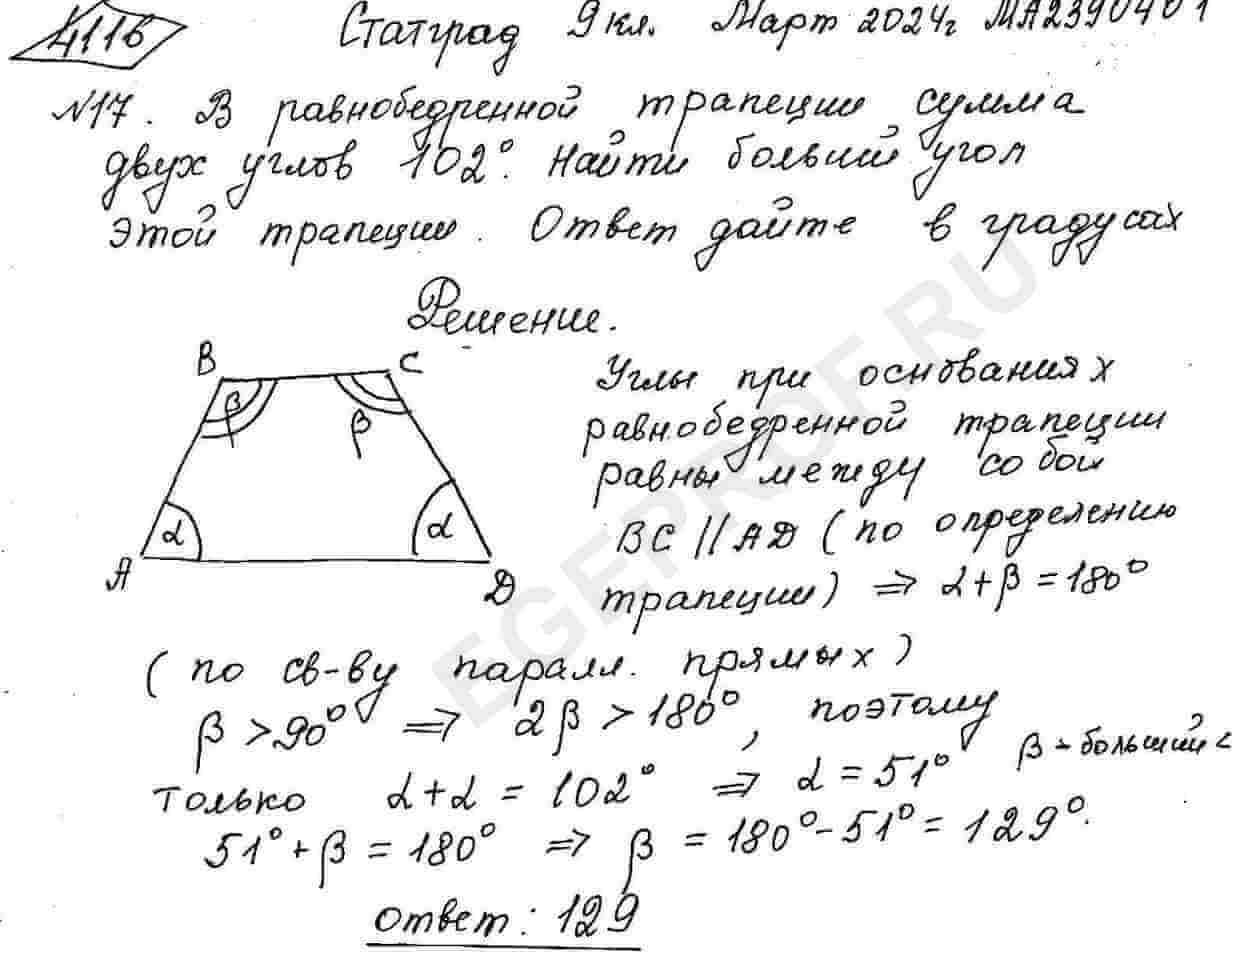 4116
Статград 9 кл. Март 2024г МА2390401
№17. В равнобедренной трапеции сумма
двух углов 102°. Найти больший угол
этой трапеции. Ответ дайте в градусах
Решение.
B C
β β
α α
A D
Углы при основаниях
равнобедренной трапеции
равны между собой
BC || AD (по определению
трапеции) ⇒ α+β = 180°
(по св-ву паралл. прямых)
β > 90° ⇒ 2β > 180°, поэтому
только α+α = 102° ⇒ α = 51° β - больший <
51° + β = 180° ⇒ β = 180° - 51° = 129°.
Ответ: 129
EGEPROF.RU